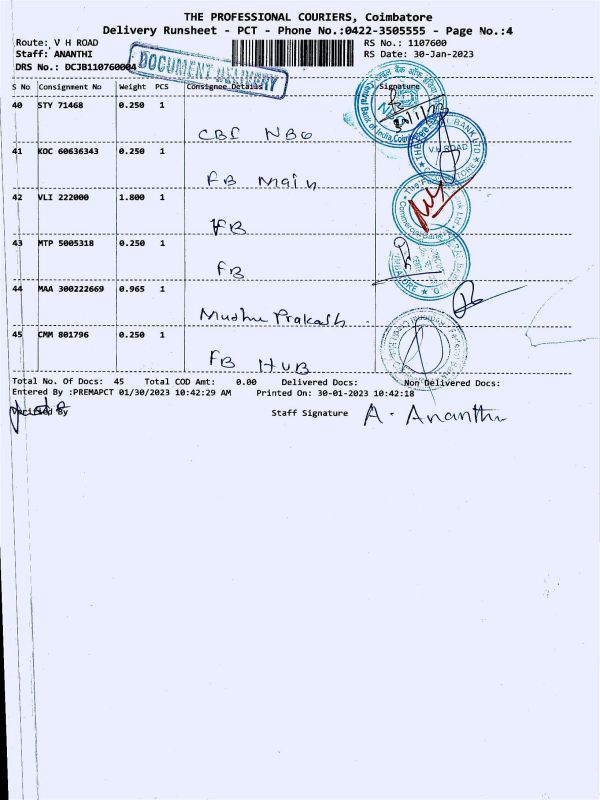 THE PROFESSIONAL COURIERS, Coimbatore
Delivery Runsheet - PCT - Phone No.:0422-3505555 - Page No.:4
Route: V H ROAD RS No.: 1107600
Staff: ANANTHI RS Date: 30-Jan-2023
DRS No.: DCJB110760004
DOCUMENT DELIVERY
S No Consignment No Weight PCS Consignee Details Signature
40 STY 71468 0.250 1
CBI NBO
41 KOC 60636343 0.250 1
FB Main
42 VLI 222000 1.800 1
FB
43 MTP 5005318 0.250 1
FB
44 MAA 300222669 0.965 1
Mudhu Prakash
45 CMM 801796 0.250 1
FB HUB
Total No. Of Docs: 45 Total COD Amt: 0.00 Delivered Docs: Non Delivered Docs:
Entered By :PREMAPCT 01/30/2023 10:42:29 AM Printed On: 30-01-2023 10:42:18
Verified By Staff Signature A. Ananthi